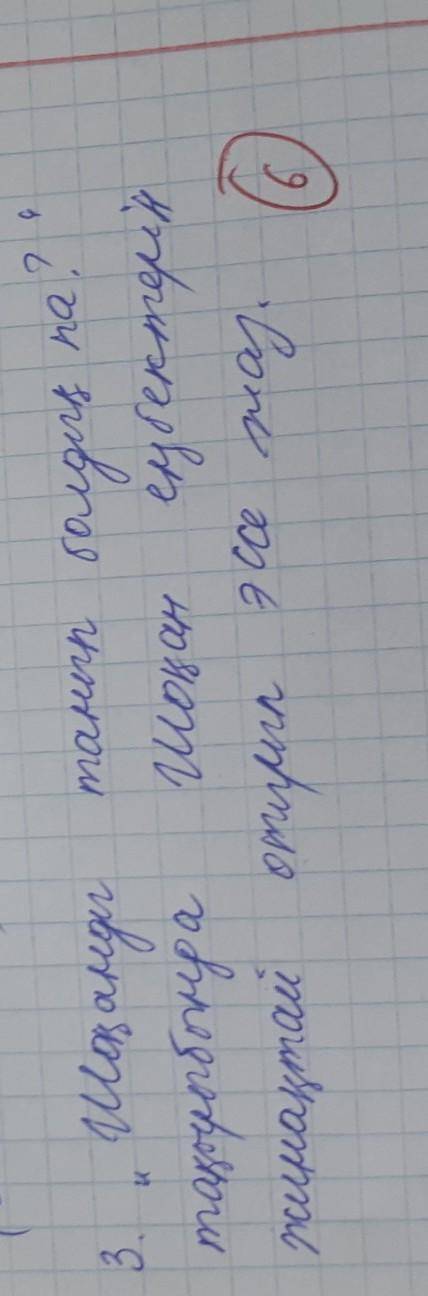 3. „Шоқанды танып болдық па?“
тақырыбында Шоқан еңбектерін
жинақтай отырып эссе жаз. 6